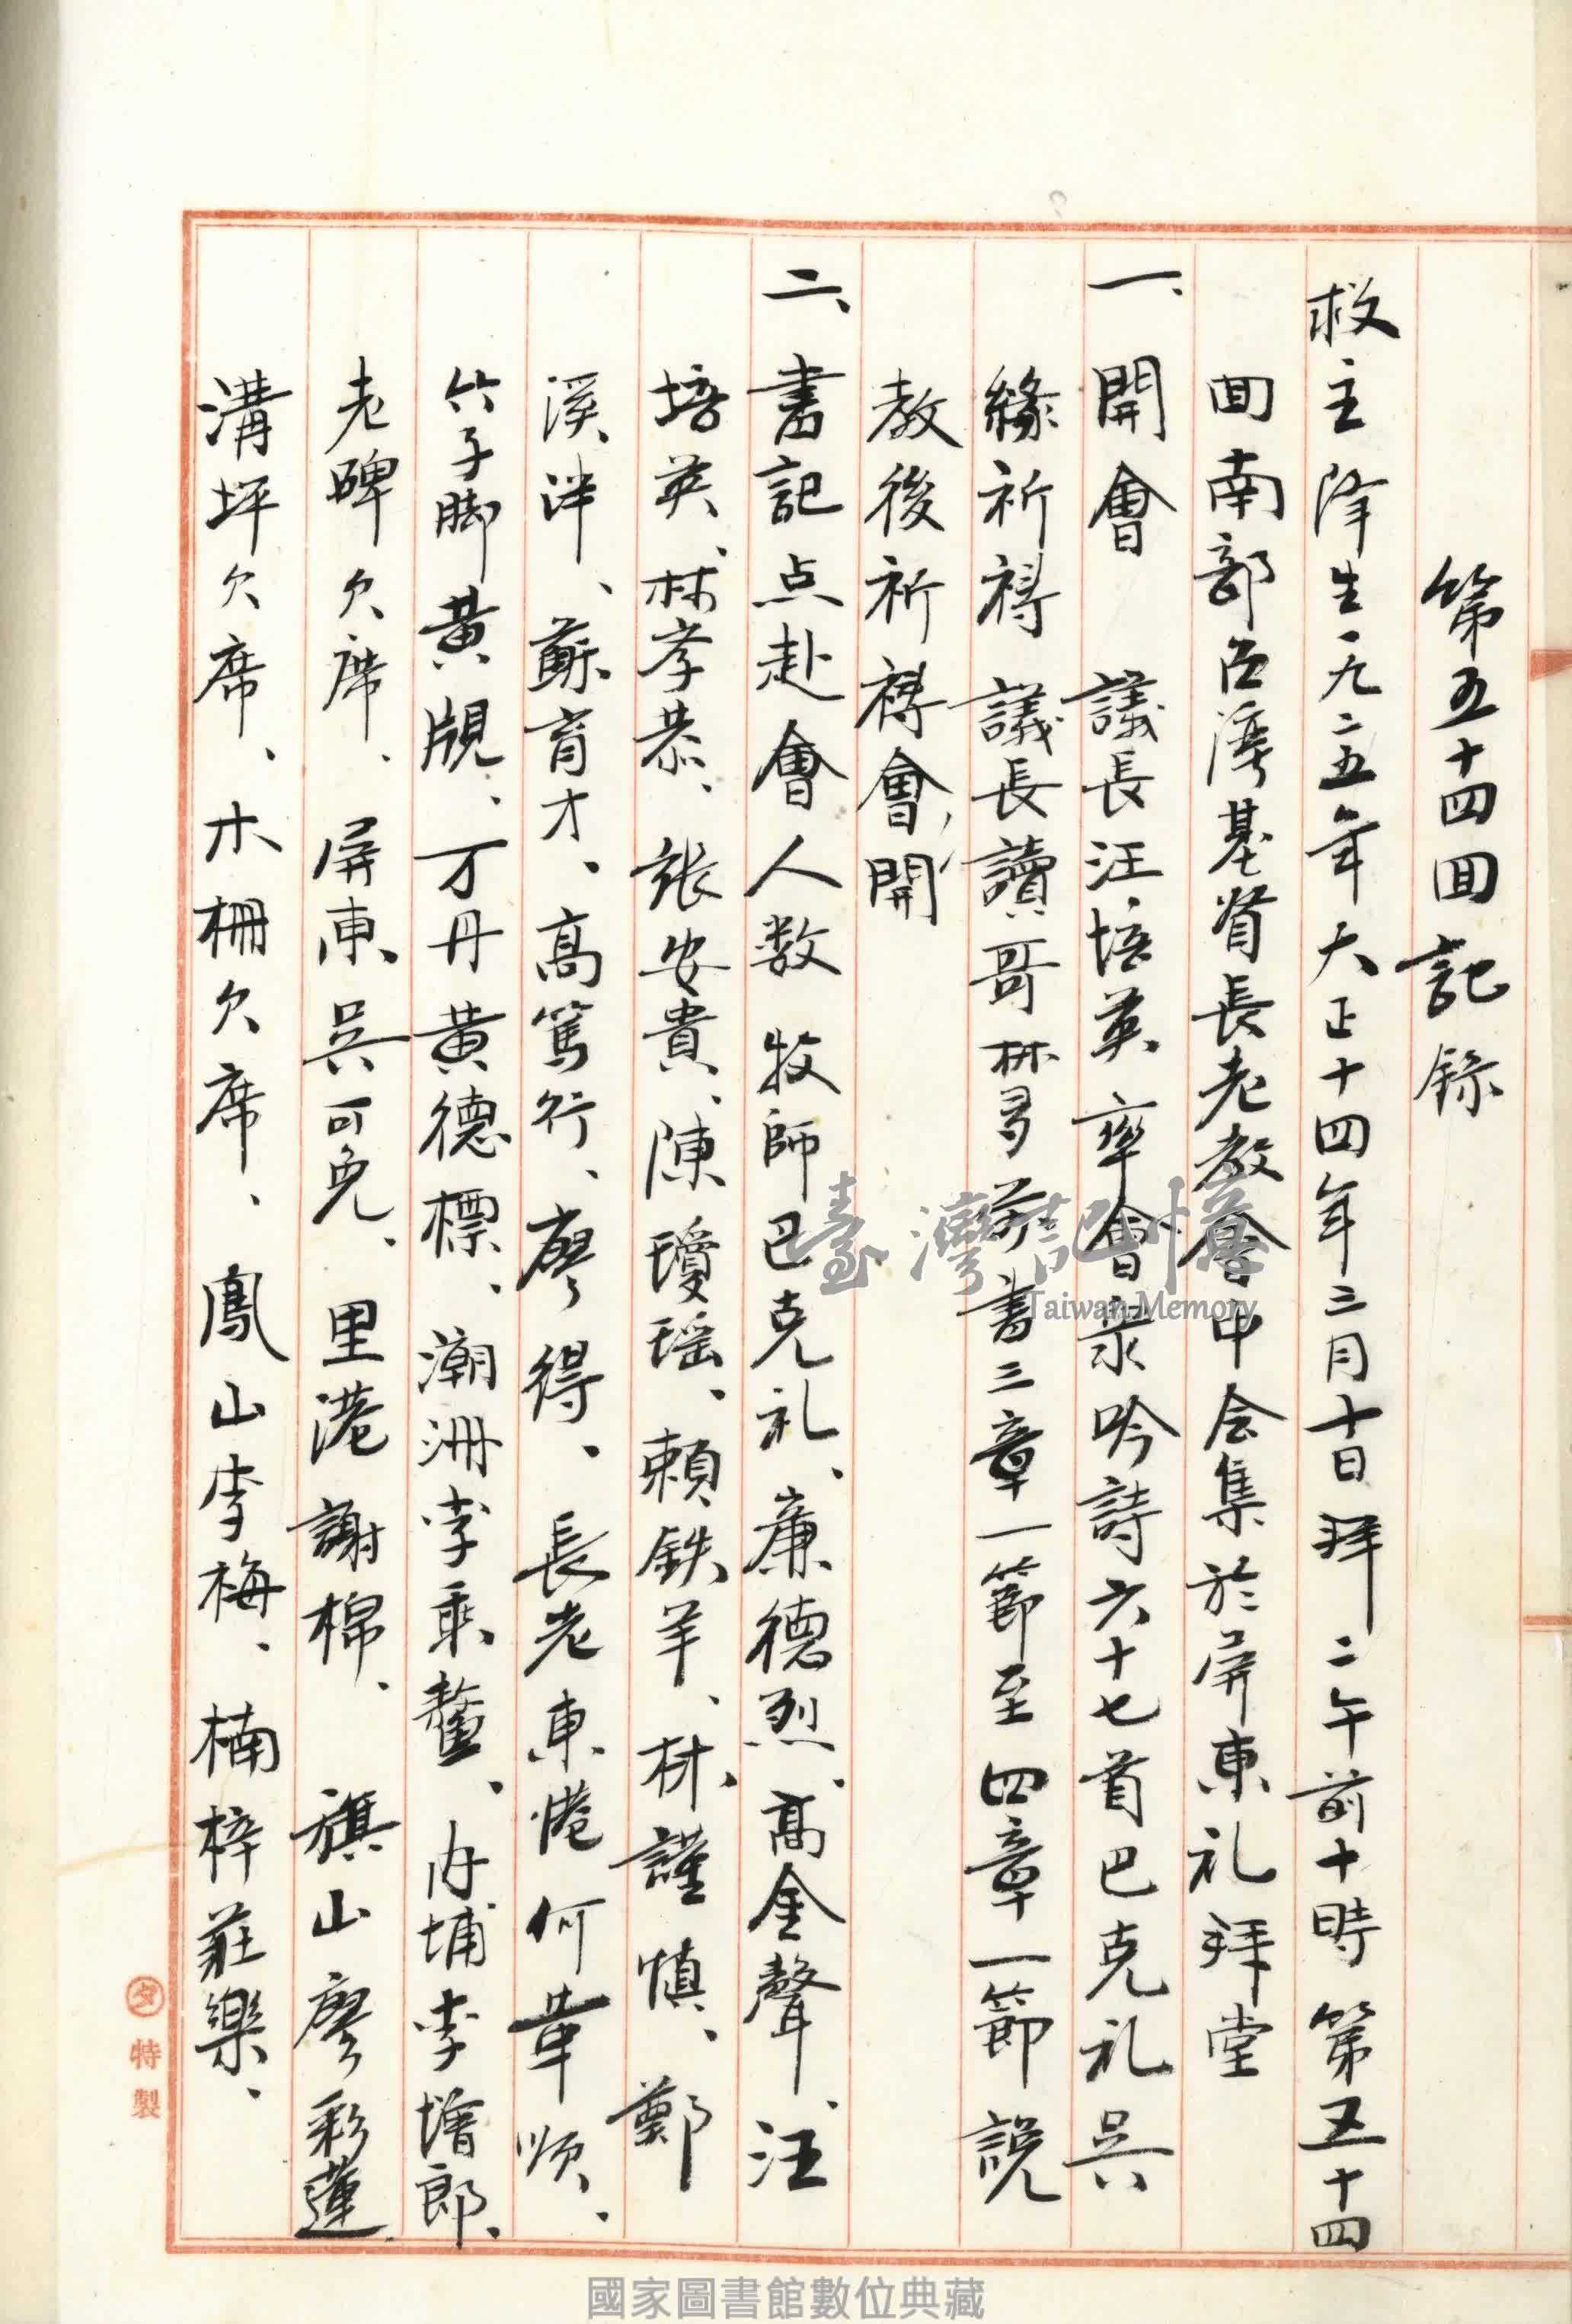 第五十四回記錄
救主降生一九二五年大正十四年三月十日拜二午前十時第五十四
回南部台湾基督長老教會中会集於屏東礼拜堂
一、開會　議長汪培英率會衆吟詩六十七首巴克礼吳
緣祈禱　議長讀哥林多前書三章一節至四章一節説
教後祈禱會,開
二、書記点赴會人数　牧師巴克礼、廉德烈、高金聲、汪
培英、林孝恭、張安貴、陳瓊瑶、賴鉄羊、林謹慎、鄭
溪泮、蘇育才、高篤行、廖得、長老東港何華順、
竹子脚黄覕、万丹黄德標、潮洲李乘鰲、内埔李増郎、
老碑欠席、屏東吳可免、里港謝棉、旗山廖彩蓮
溝坪欠席、木柵欠席、鳳山李梅、楠梓莊樂、
タ特製
臺灣記憶
Taiwan Memory
國家圖書館數位典藏